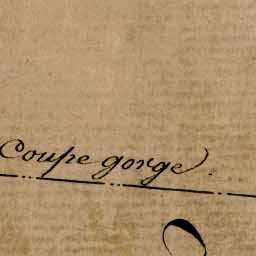 Coupe gorge.